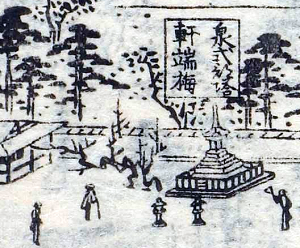 泉式部塔
軒端梅